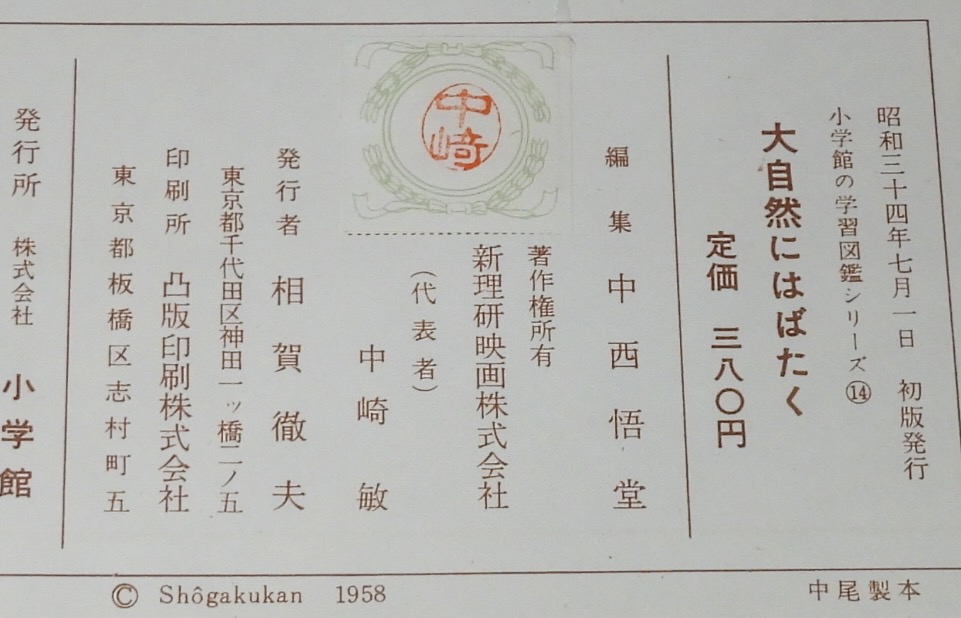 昭和三十四年七月一日　初版発行
小学館の学習図鑑シリーズ⑭
大自然にはばたく
定価　三八〇円
編集　中西悟堂
著作権所有
新理研映画株式会社
（代表者）
中崎敏
中崎
発行者　相賀徹夫
東京都千代田区神田一ッ橋二ノ五
印刷所　凸版印刷株式会社
東京都板橋区志村町五
発行所　株式会社　小学館
© Shôgakukan 1958
中尾製本